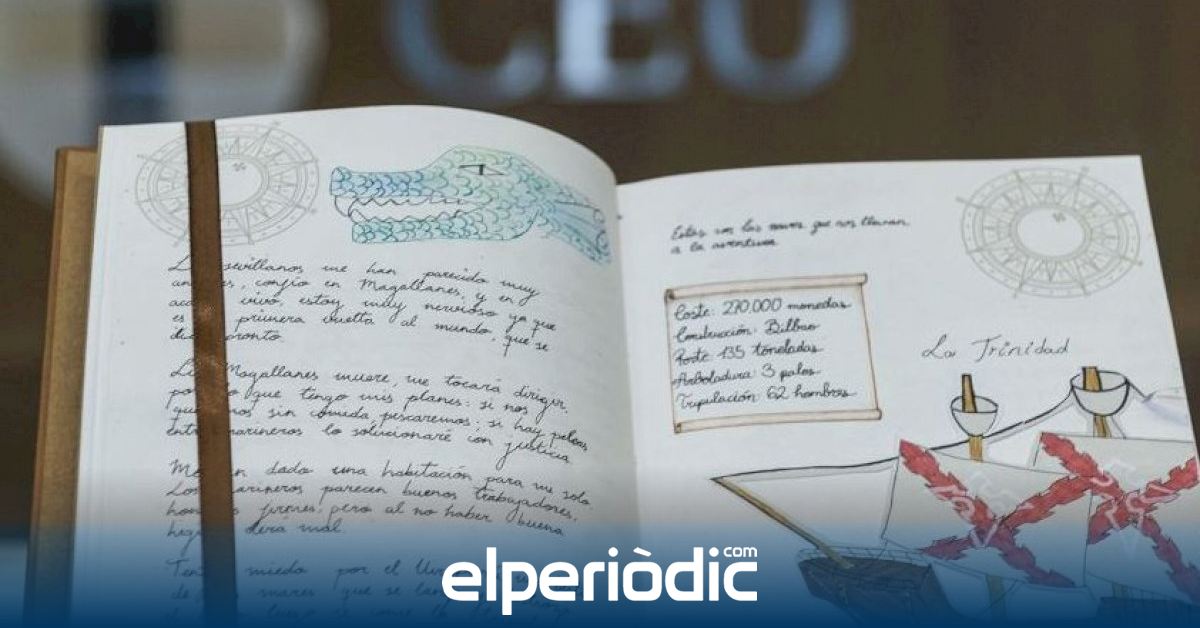 CEU
sevillanos me han parecido muy
confío en Magallanes, y en
vivo, estoy muy nervioso ya que
es primera vuelta al mundo, que se
pronto.
Magallanes muere, me tocará dirigir,
que tengo mis planes: si nos
sin comida pescaremos; si hay peleas
entre marineros lo solucionaré con justicia
dado una habitación para mi solo
Los marineros parecen buenos trabajadores,
firmes, pero al no haber buena
mal.
miedo por el
de mares que se
Estas son las naves que nos llevan
a la aventura
Coste: 270.000 monedas
Construcción: Bilbao
Porte: 135 toneladas
Arboladura: 3 palos
Tripulación: 62 hombres
La Trinidad
elperiòdic.com